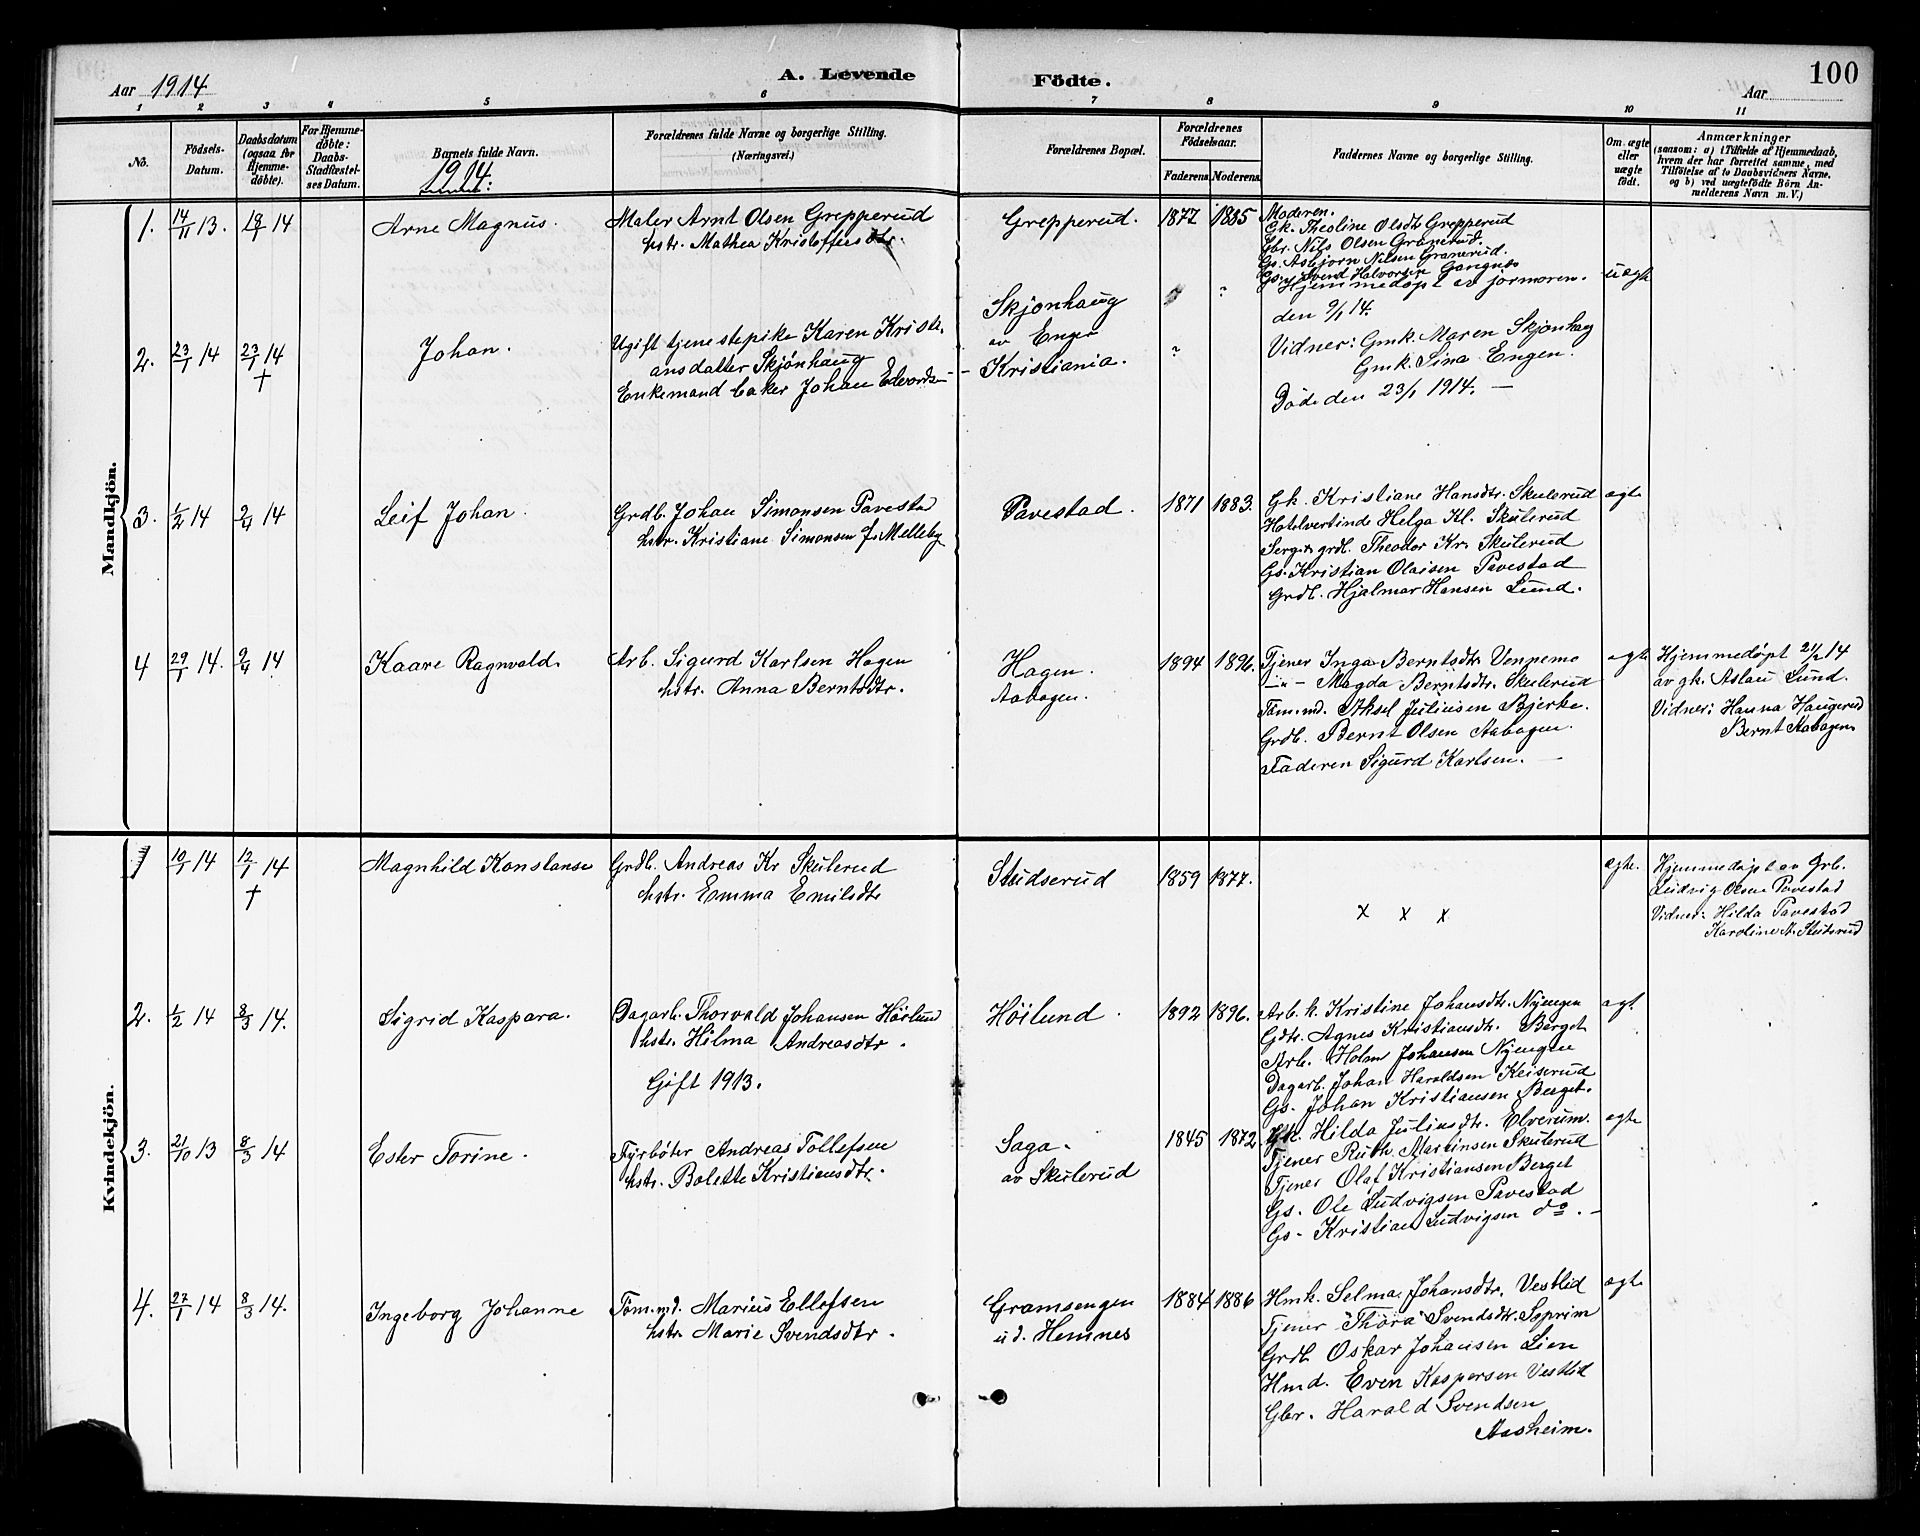 Aar 1914
A. Levende
Födte.
100
Aar
1 2 3 4 5 6 7 8 9 10 11
No.
Födsels-
Datum.
Daabsdatum
(ogsaa for
Hjemme-
döbte).
For Hjemme-
döbte:
Daabs-
Stadfæstel-
ses Datum.
Barnets fulde Navn.
1914:
Forældrenes fulde Navne og borgerlige Stilling.
(Næringsvei.)
Forældrenes Bopæl.
Forældrenes
Födselsaar.
Faderens. Moderens.
Faddernes Navne og borgerlige Stilling.
Om ægte
eller
uægte
födt.
Anmærkninger
(saasom: a) i Tilfælde af Hjemmedaab,
hvem der har forrettet samme, med
Tilföielse af to Daabsvidners Navne,
og b) ved uægtefödte Börn An-
melderens Navn m. V.)
Mandkjön.
1. 14/11 13. 18/1 14
Arne Magnus.
Maler Arnt Olsen Grepperud
hstr. Mathea Kristoffersdtr.
Grepperud. 1877 1885
Moderen.
Gk. Theoline Olsdtr Grepperud
Gbr. Nils Olsen Granerud.
Gs. Asbjørn Nilsen Granerud.
Gs. Svend Halvorsen Gangnes
2. 23/1 14 23/1 14
†
Johan.
Ugift tjenestepike Karen Kristi-
ansdatter Skjønhaug
Enkemand baker Johan Edvards-
Skjønhaug
av Enger
- Kristiania.
? ?
Hjemmedøpt av jormoren.
den 9/1 14.
Vidner: Gmk. Maren Skjønhaug
Gmk. Sina Engen.
Døde den 23/1 1914. —
uegte
3. 1/2 14 2/4 14
Leif Johan.
Grdb. Johan Simonsen Tavestad
hstr. Kristiane Simonsen f. Melleby
Tavestad. 1871 1883.
Gk. Kristiane Hansdtr. Skulerud
Hotelvertinde Helga Kl. Skulerud
Serg. & grdb. Theodor Kr. Skulerud
Gs. Kristian Olaisen Tavestad
Grdb. Hjalmar Hansen Lund.
egte
4 29/1 14. 9/4 14
Kaare Ragnvald.
Arb. Sigurd Karlsen Hagen
hstr. Anna Berntsdtr.
Hagen.
Aabogen.
1894 1896.
Tjener Inga Berntsdtr. Vennemo
—"— Magda Berntsdtr. Skulerud
Tøm.md. Aksel Juliusen Bjerke.
Grdb. Bernt Olsen Aabogen.
Faderen Sigurd Karlsen. —
egte
Hjemmedøpt 21/2 14
av gk. Aslau Lund.
Vidner: Hanna Haugerud
Bernt Aabogen.
Kvindekjön.
1 10/1 14 12/1 14
†
Magnhild Konstanse
Grdb. Andreas Kr Skulerud
hstr. Emma Emilsdtr
Studserud 1859 1877.
x x x
egte.
Hjemmedøpt av Grb.
Ludvig Olsen Tavestad
Vidner: Hilda Tavestad
Karoline A. Stutsrud
2. 1/2 14 8/3 14.
Sigrid Kaspara.
Dagarb. Thorvald Johansen Höilund
hstr. Hilma Andreasdtr.
Gift 1913.
Höilund. 1892 1896.
Arb. k. Kristine Johansdtr. Nyengen
Gdtr. Agnes Kristiansdtr. Berget
Arb. Holm Johansen Nyengen
Dagarb. Johan Haraldsen Keiserud
Gs. Johan Kristiansen Berget.
egt.
3. 21/10 13 8/3 14
Ester Torine.
Fyrbøter Andreas Tollefsen
hstr. Bolette Kristiansdtr.
Saga.
av Skulerud
1845 1872
Gk. Hilda Juliusdtr. Elverum.
Tjener Ruth Martinsen Skulerud
Tjener Olaf Kristiansen Berget
Gs. Ole Ludvigsen Tavestad
Gs - Kristian Ludvigsen do. -
egte
4. 27/1 14 8/3 14.
Ingeborg Johanne
Tøm.md. Marius Ellefsen
hstr. Marie Svendsdtr.
Gramsengen
u.d. Hemnes
1884 1886
Hmk. Selma Johansdtr. Vestlid
Tjener Thora Svendsdtr. Soprim
Grdb Oskar Johansen Lien
Hmd. Even Kaspersen Vestlid
Gbr. Harald Svendsen
Aasheim.
egte